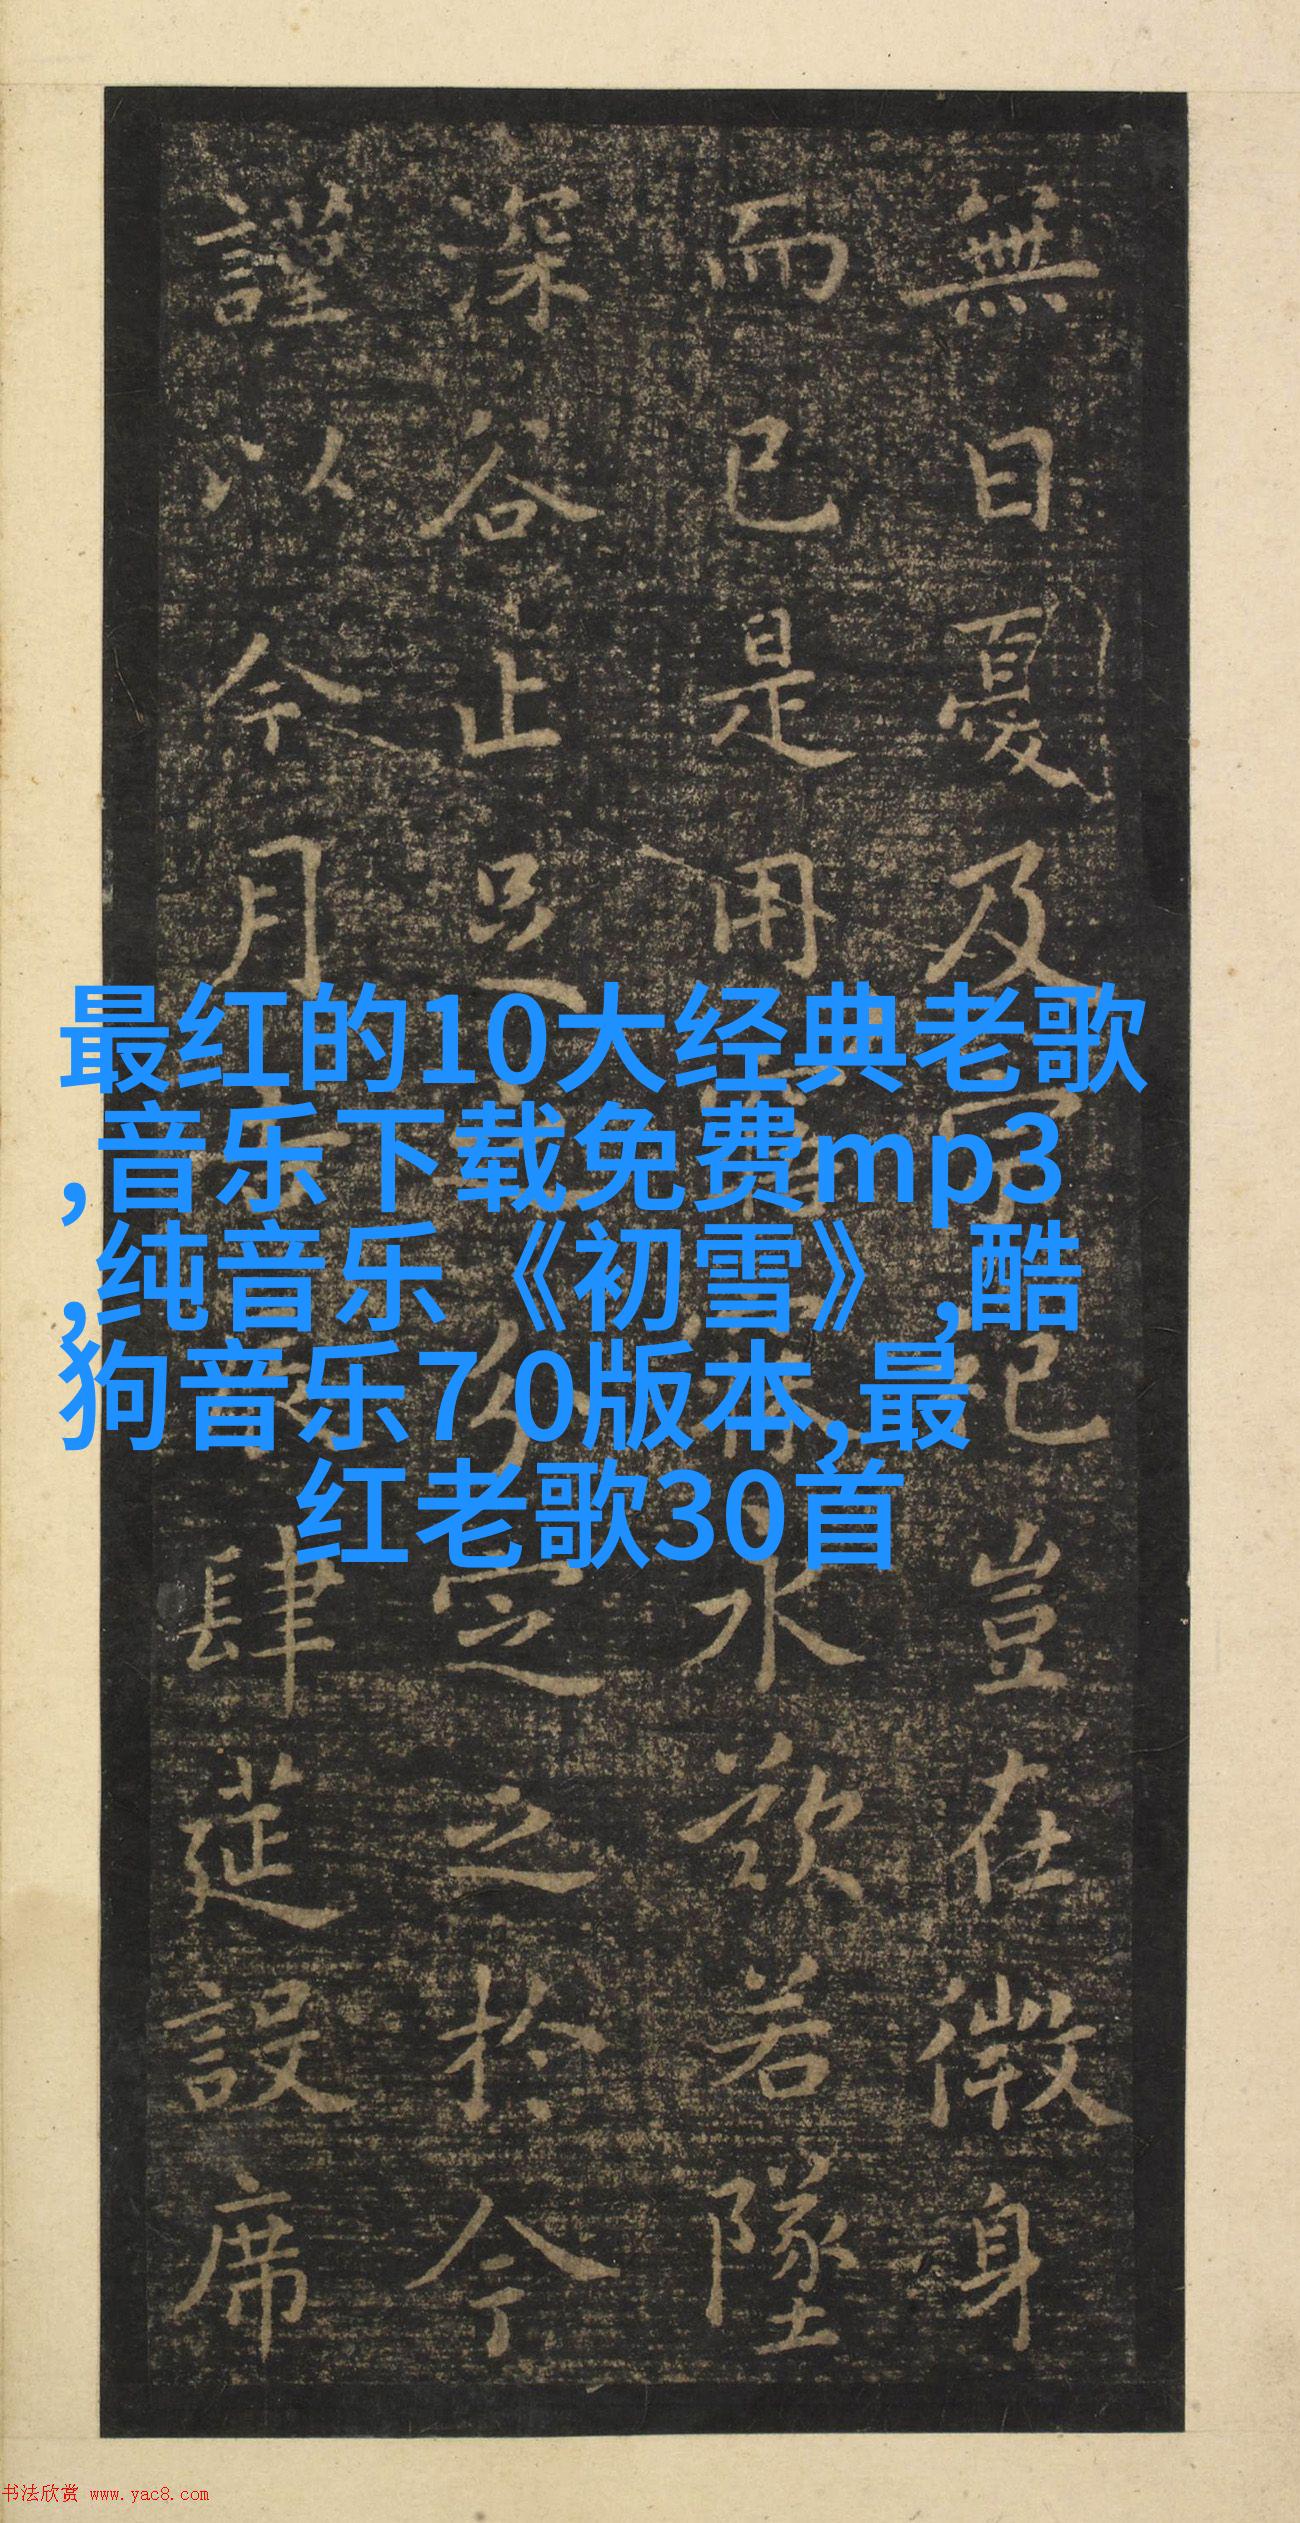 無日憂及祀豈在微身
而已是用永歎若墜
深谷止足分定之於今
謹以今月肆筵設席
最红的10大经典老歌
,音乐下载免费mp3
,纯音乐《初雪》,酷
狗音乐7 0版本,最
红老歌30首
书法欣赏 www.yac8.com